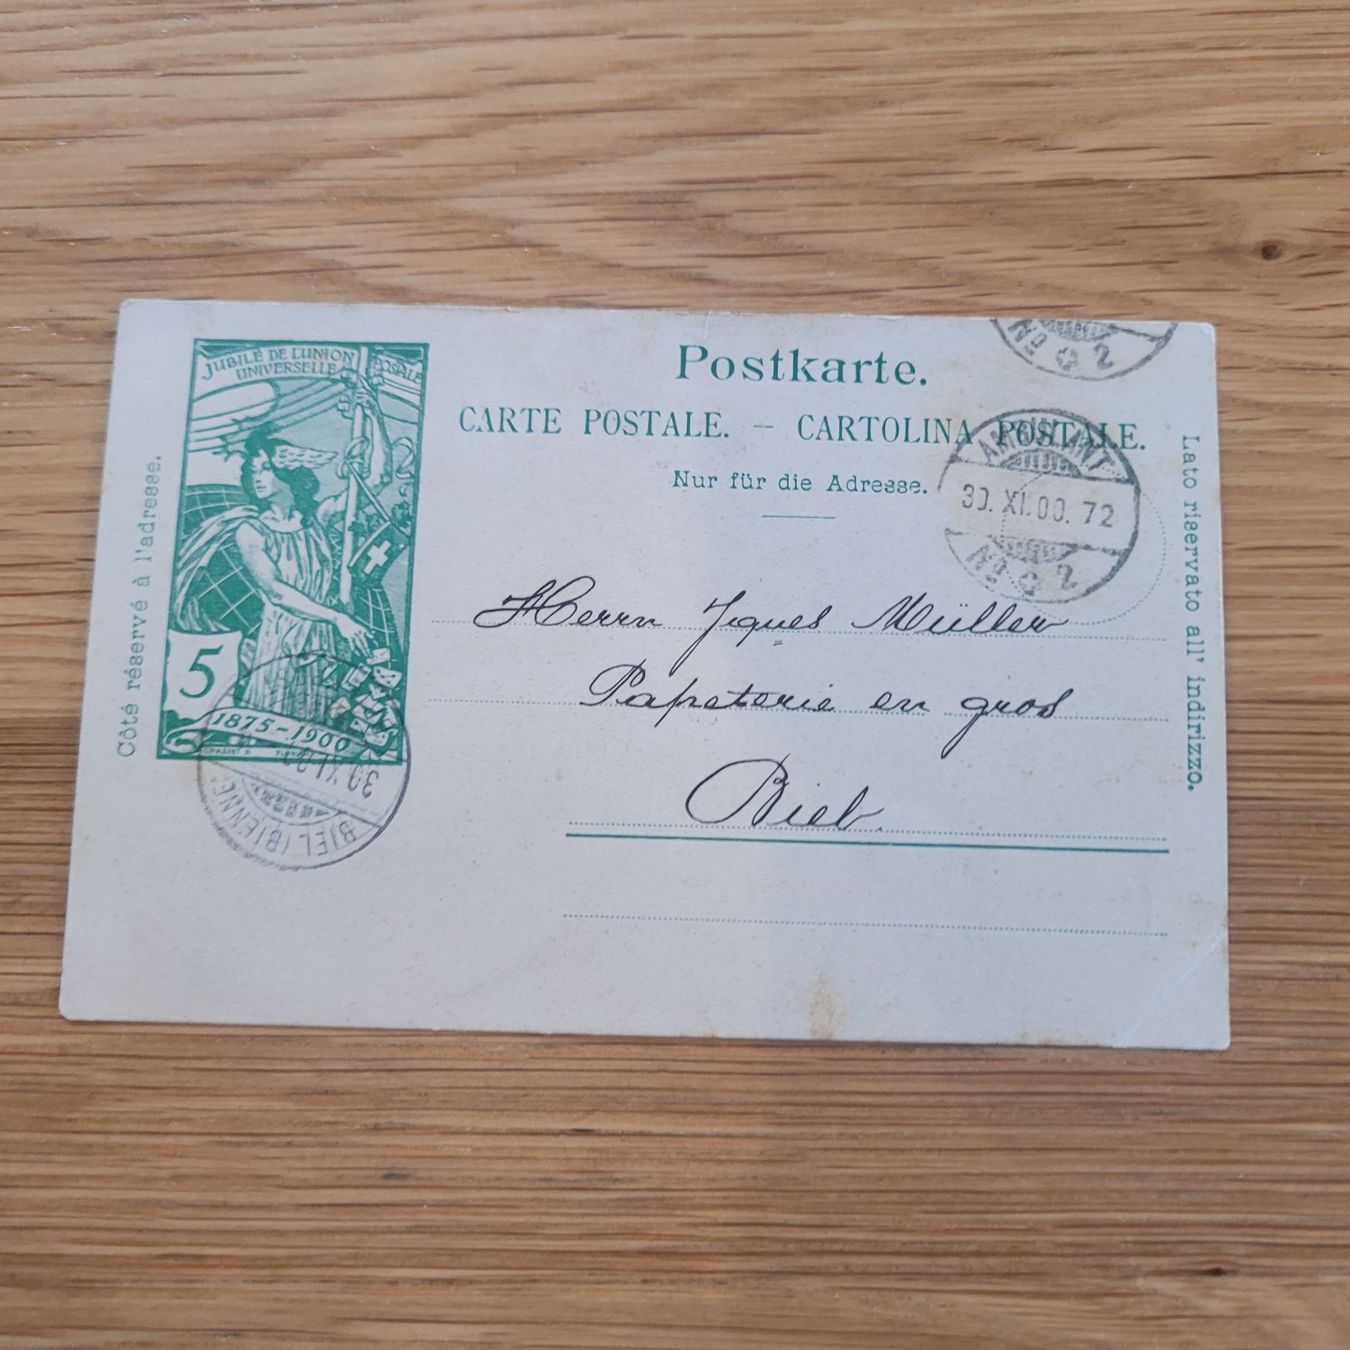 JUBILÉ DE L'UNION
UNIVERSELLE POSTALE
5
1875-1900
GRASSET
Côté réservé à l'adresse.
Postkarte.
CARTE POSTALE. — CARTOLINA POSTALE.
Nur für die Adresse.
No 2
AMBULANT
30. XI. 00. 72
No 2
Lato riservato all' indirizzo.
Herrn Jques Müller
Papeterie en gros
Biel.
30 XI
BIEL (BIENNE)